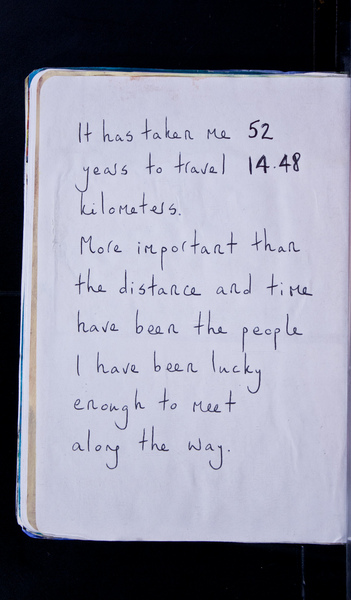 It has taken me 52
years to travel 14.48
kilometers.
More important than
the distance and time
have been the people
I have been lucky
enough to meet
along the way.